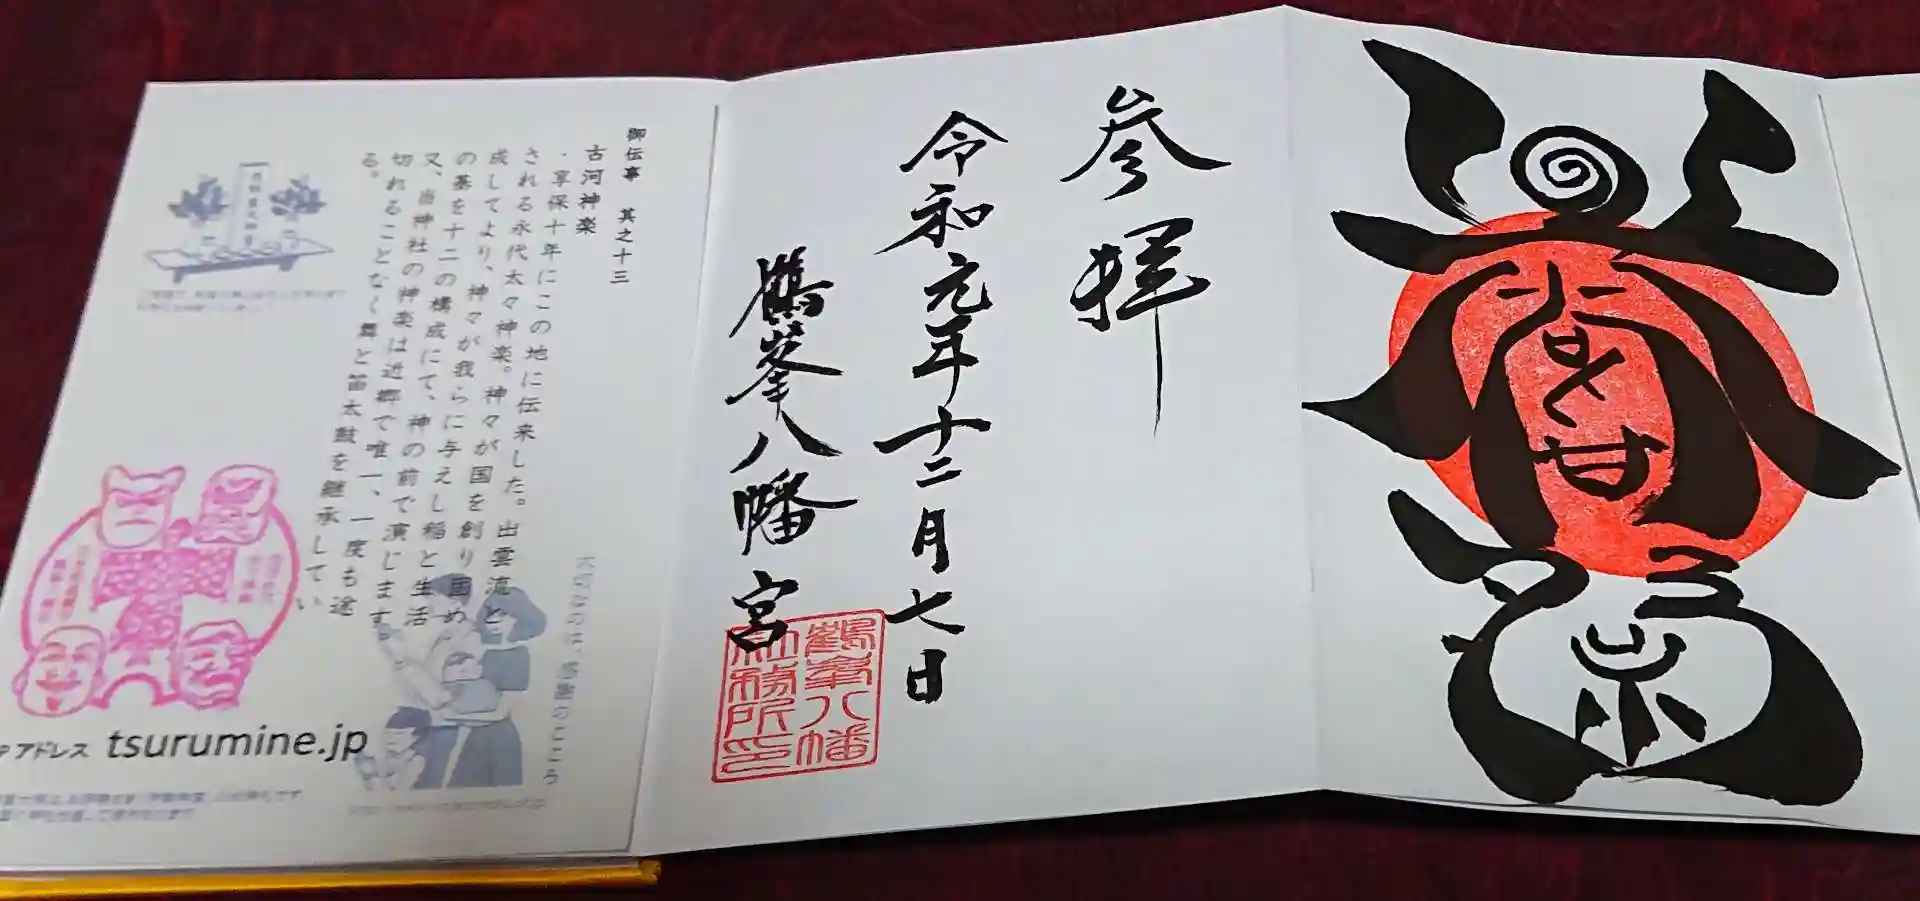 参拝
令和元年十二月七日
鶴峯八幡宮
鶴峯八幡
社務所印
御伝事 其之十三
古河神楽
・享保十年にこの地に伝来した。出雲流と
される永代太々神楽。神々が国を創り固め
成してより、神々が我らに与えし稲と生活
の基を十二の構成にて、神の前で演じます。
又、当神社の神楽は近郷で唯一、一度も途
切れることなく舞と笛太鼓を継承してい
る。
大切なのは、感謝のこころ
アドレス tsurumine.jp